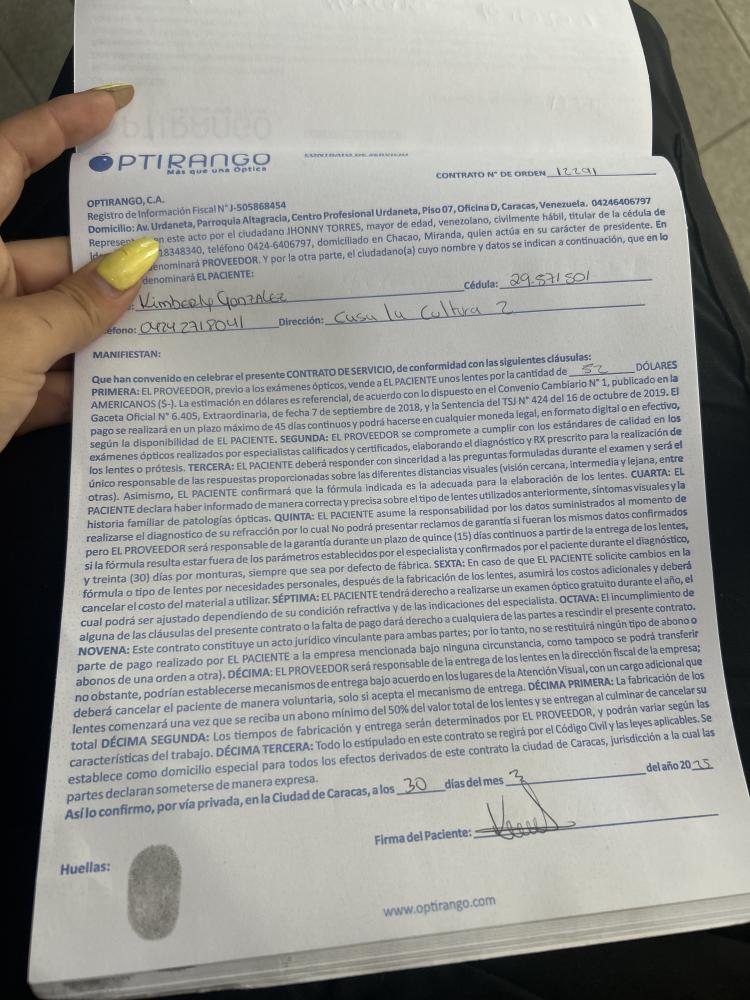 OPTIRANGO
Más que una Óptica
CONTRATO DE SERVICIO
CONTRATO N° DE ORDEN 12291
OPTIRANGO, C.A.
Registro de Información Fiscal N° J-505868454
Domicilio: Av. Urdaneta, Parroquia Altagracia, Centro Profesional Urdaneta, Piso 07, Oficina D, Caracas, Venezuela. 04246406797
Represent en este acto por el ciudadano JHONNY TORRES, mayor de edad, venezolano, civilmente hábil, titular de la cédula de
Iden 18348340, teléfono 0424-6406797, domiciliado en Chacao, Miranda, quien actúa en su carácter de presidente. En
denominará PROVEEDOR. Y por la otra parte, el ciudadano(a) cuyo nombre y datos se indican a continuación, que en lo
denominará EL PACIENTE:
Kimberly Gonzalez Cédula: 29.571501
éfono: 04242718041 Dirección: Casa la Cultura 2
MANIFIESTAN:
Que han convenido en celebrar el presente CONTRATO DE SERVICIO, de conformidad con las siguientes cláusulas:
PRIMERA: EL PROVEEDOR, previo a los exámenes ópticos, vende a EL PACIENTE unos lentes por la cantidad de 52 DÓLARES
AMERICANOS ($-). La estimación en dólares es referencial, de acuerdo con lo dispuesto en el Convenio Cambiario N° 1, publicado en la
Gaceta Oficial N° 6.405, Extraordinaria, de fecha 7 de septiembre de 2018, y la Sentencia del TSJ N° 424 del 16 de octubre de 2019. El
pago se realizará en un plazo máximo de 45 días continuos y podrá hacerse en cualquier moneda legal, en formato digital o en efectivo,
según la disponibilidad de EL PACIENTE. SEGUNDA: EL PROVEEDOR se compromete a cumplir con los estándares de calidad en los
exámenes ópticos realizados por especialistas calificados y certificados, elaborando el diagnóstico y RX prescrito para la realización de
los lentes o prótesis. TERCERA: EL PACIENTE deberá responder con sinceridad a las preguntas formuladas durante el examen y será el
único responsable de las respuestas proporcionadas sobre las diferentes distancias visuales (visión cercana, intermedia y lejana, entre
otras). Asimismo, EL PACIENTE confirmará que la fórmula indicada es la adecuada para la elaboración de los lentes. CUARTA: EL
PACIENTE declara haber informado de manera correcta y precisa sobre el tipo de lentes utilizados anteriormente, síntomas visuales y la
historia familiar de patologías ópticas. QUINTA: EL PACIENTE asume la responsabilidad por los datos suministrados al momento de
realizarse el diagnostico de su refracción por lo cual No podrá presentar reclamos de garantía si fueran los mismos datos confirmados
pero EL PROVEEDOR será responsable de la garantía durante un plazo de quince (15) días continuos a partir de la entrega de los lentes,
si la fórmula resulta estar fuera de los parámetros establecidos por el especialista y confirmados por el paciente durante el diagnóstico,
y treinta (30) días por monturas, siempre que sea por defecto de fábrica. SEXTA: En caso de que EL PACIENTE solicite cambios en la
fórmula o tipo de lentes por necesidades personales, después de la fabricación de los lentes, asumirá los costos adicionales y deberá
cancelar el costo del material a utilizar. SÉPTIMA: EL PACIENTE tendrá derecho a realizarse un examen óptico gratuito durante el año, el
cual podrá ser ajustado dependiendo de su condición refractiva y de las indicaciones del especialista. OCTAVA: El incumplimiento de
alguna de las cláusulas del presente contrato o la falta de pago dará derecho a cualquiera de las partes a rescindir el presente contrato.
NOVENA: Este contrato constituye un acto jurídico vinculante para ambas partes; por lo tanto, no se restituirá ningún tipo de abono o
parte de pago realizado por EL PACIENTE a la empresa mencionada bajo ninguna circunstancia, como tampoco se podrá transferir
abonos de una orden a otro). DÉCIMA: EL PROVEEDOR será responsable de la entrega de los lentes en la dirección fiscal de la empresa;
no obstante, podrían establecerse mecanismos de entrega bajo acuerdo en los lugares de la Atención Visual, con un cargo adicional que
deberá cancelar el paciente de manera voluntaria, solo si acepta el mecanismo de entrega. DÉCIMA PRIMERA: La fabricación de los
lentes comenzará una vez que se reciba un abono mínimo del 50% del valor total de los lentes y se entregan al culminar de cancelar su
total DÉCIMA SEGUNDA: Los tiempos de fabricación y entrega serán determinados por EL PROVEEDOR, y podrán variar según las
características del trabajo. DÉCIMA TERCERA: Todo lo estipulado en este contrato se regirá por el Código Civil y las leyes aplicables. Se
establece como domicilio especial para todos los efectos derivados de este contrato la ciudad de Caracas, jurisdicción a la cual las
partes declaran someterse de manera expresa.
Así lo confirmo, por vía privada, en la Ciudad de Caracas, a los 30 días del mes 3 del año 2025
Firma del Paciente:
Huellas:
www.optirango.com